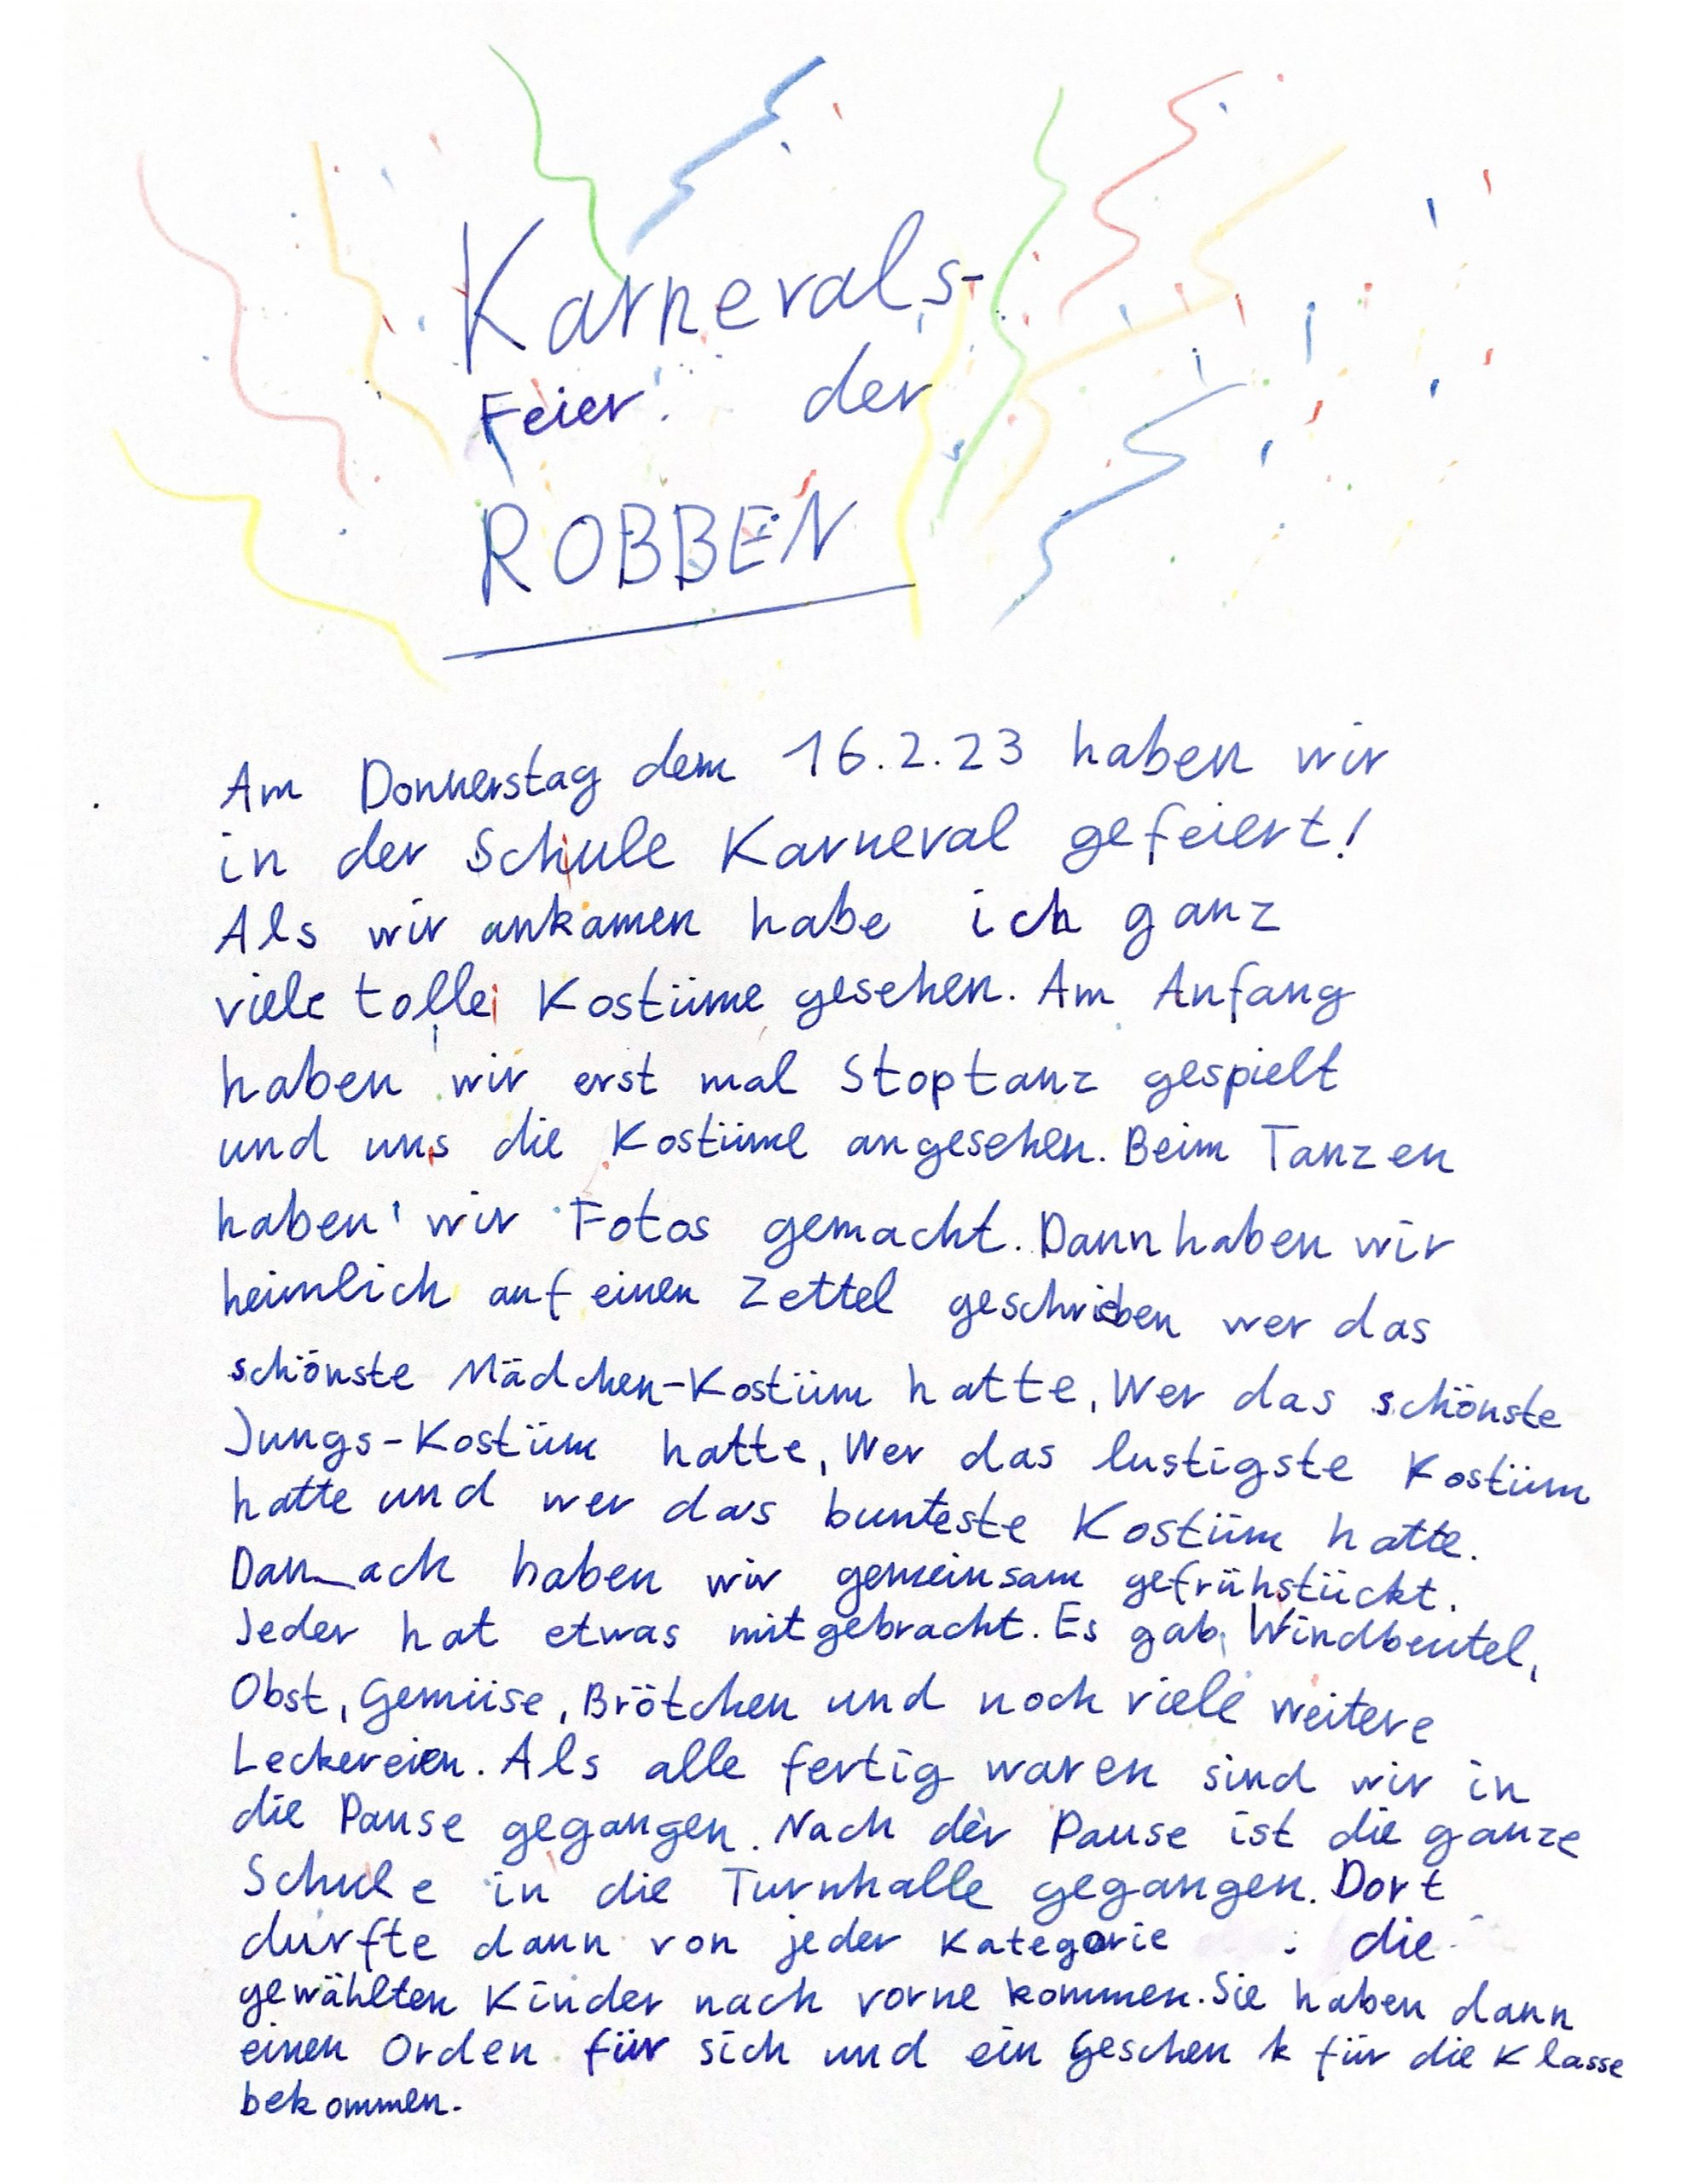 Karnevals-
Feier der
ROBBEN
Am Donnerstag dem 16.2.23 haben wir
in der Schule Karneval gefeiert!
Als wir ankamen habe ich ganz
viele tolle Kostüme gesehen. Am Anfang
haben wir erst mal Stoptanz gespielt
und uns die Kostüme angesehen. Beim Tanzen
haben wir Fotos gemacht. Dann haben wir
heimlich auf einen Zettel geschrieben wer das
schönste Mädchen-Kostüm hatte, Wer das schönste
Jungs-Kostüm hatte, Wer das lustigste Kostüm
hatte und wer das bunteste Kostüm hatte.
Dan_ach haben wir gemeinsam gefrühstückt.
Jeder hat etwas mitgebracht. Es gab Windbeutel,
Obst, Gemüise, Brötchen und noch viele weitere
Leckereien. Als alle fertig waren sind wir in
die Pause gegangen. Nach der Pause ist die ganze
Schule in die Turnhalle gegangen. Dort
durfte dann von jeder Kategorie die
gewählten Kinder nach vorne kommen. Sie haben dann
einen Orden für sich und ein Geschenk für die Klasse
bekommen.